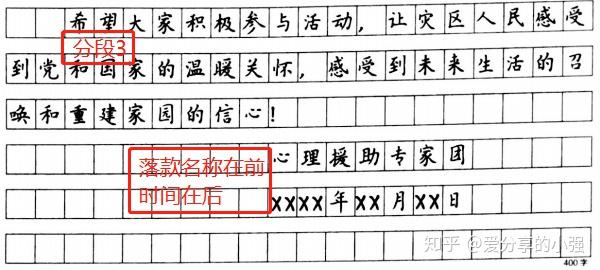 希望大家积极参与活动，让灾区人民感受
分段3
到党和国家的温暖关怀，感受到未来生活的召
唤和重建家园的信心！
落款名称在前
时间在后
心理援助专家团
XXXX年XX月XX日
知乎 @爱分享的小强
400字